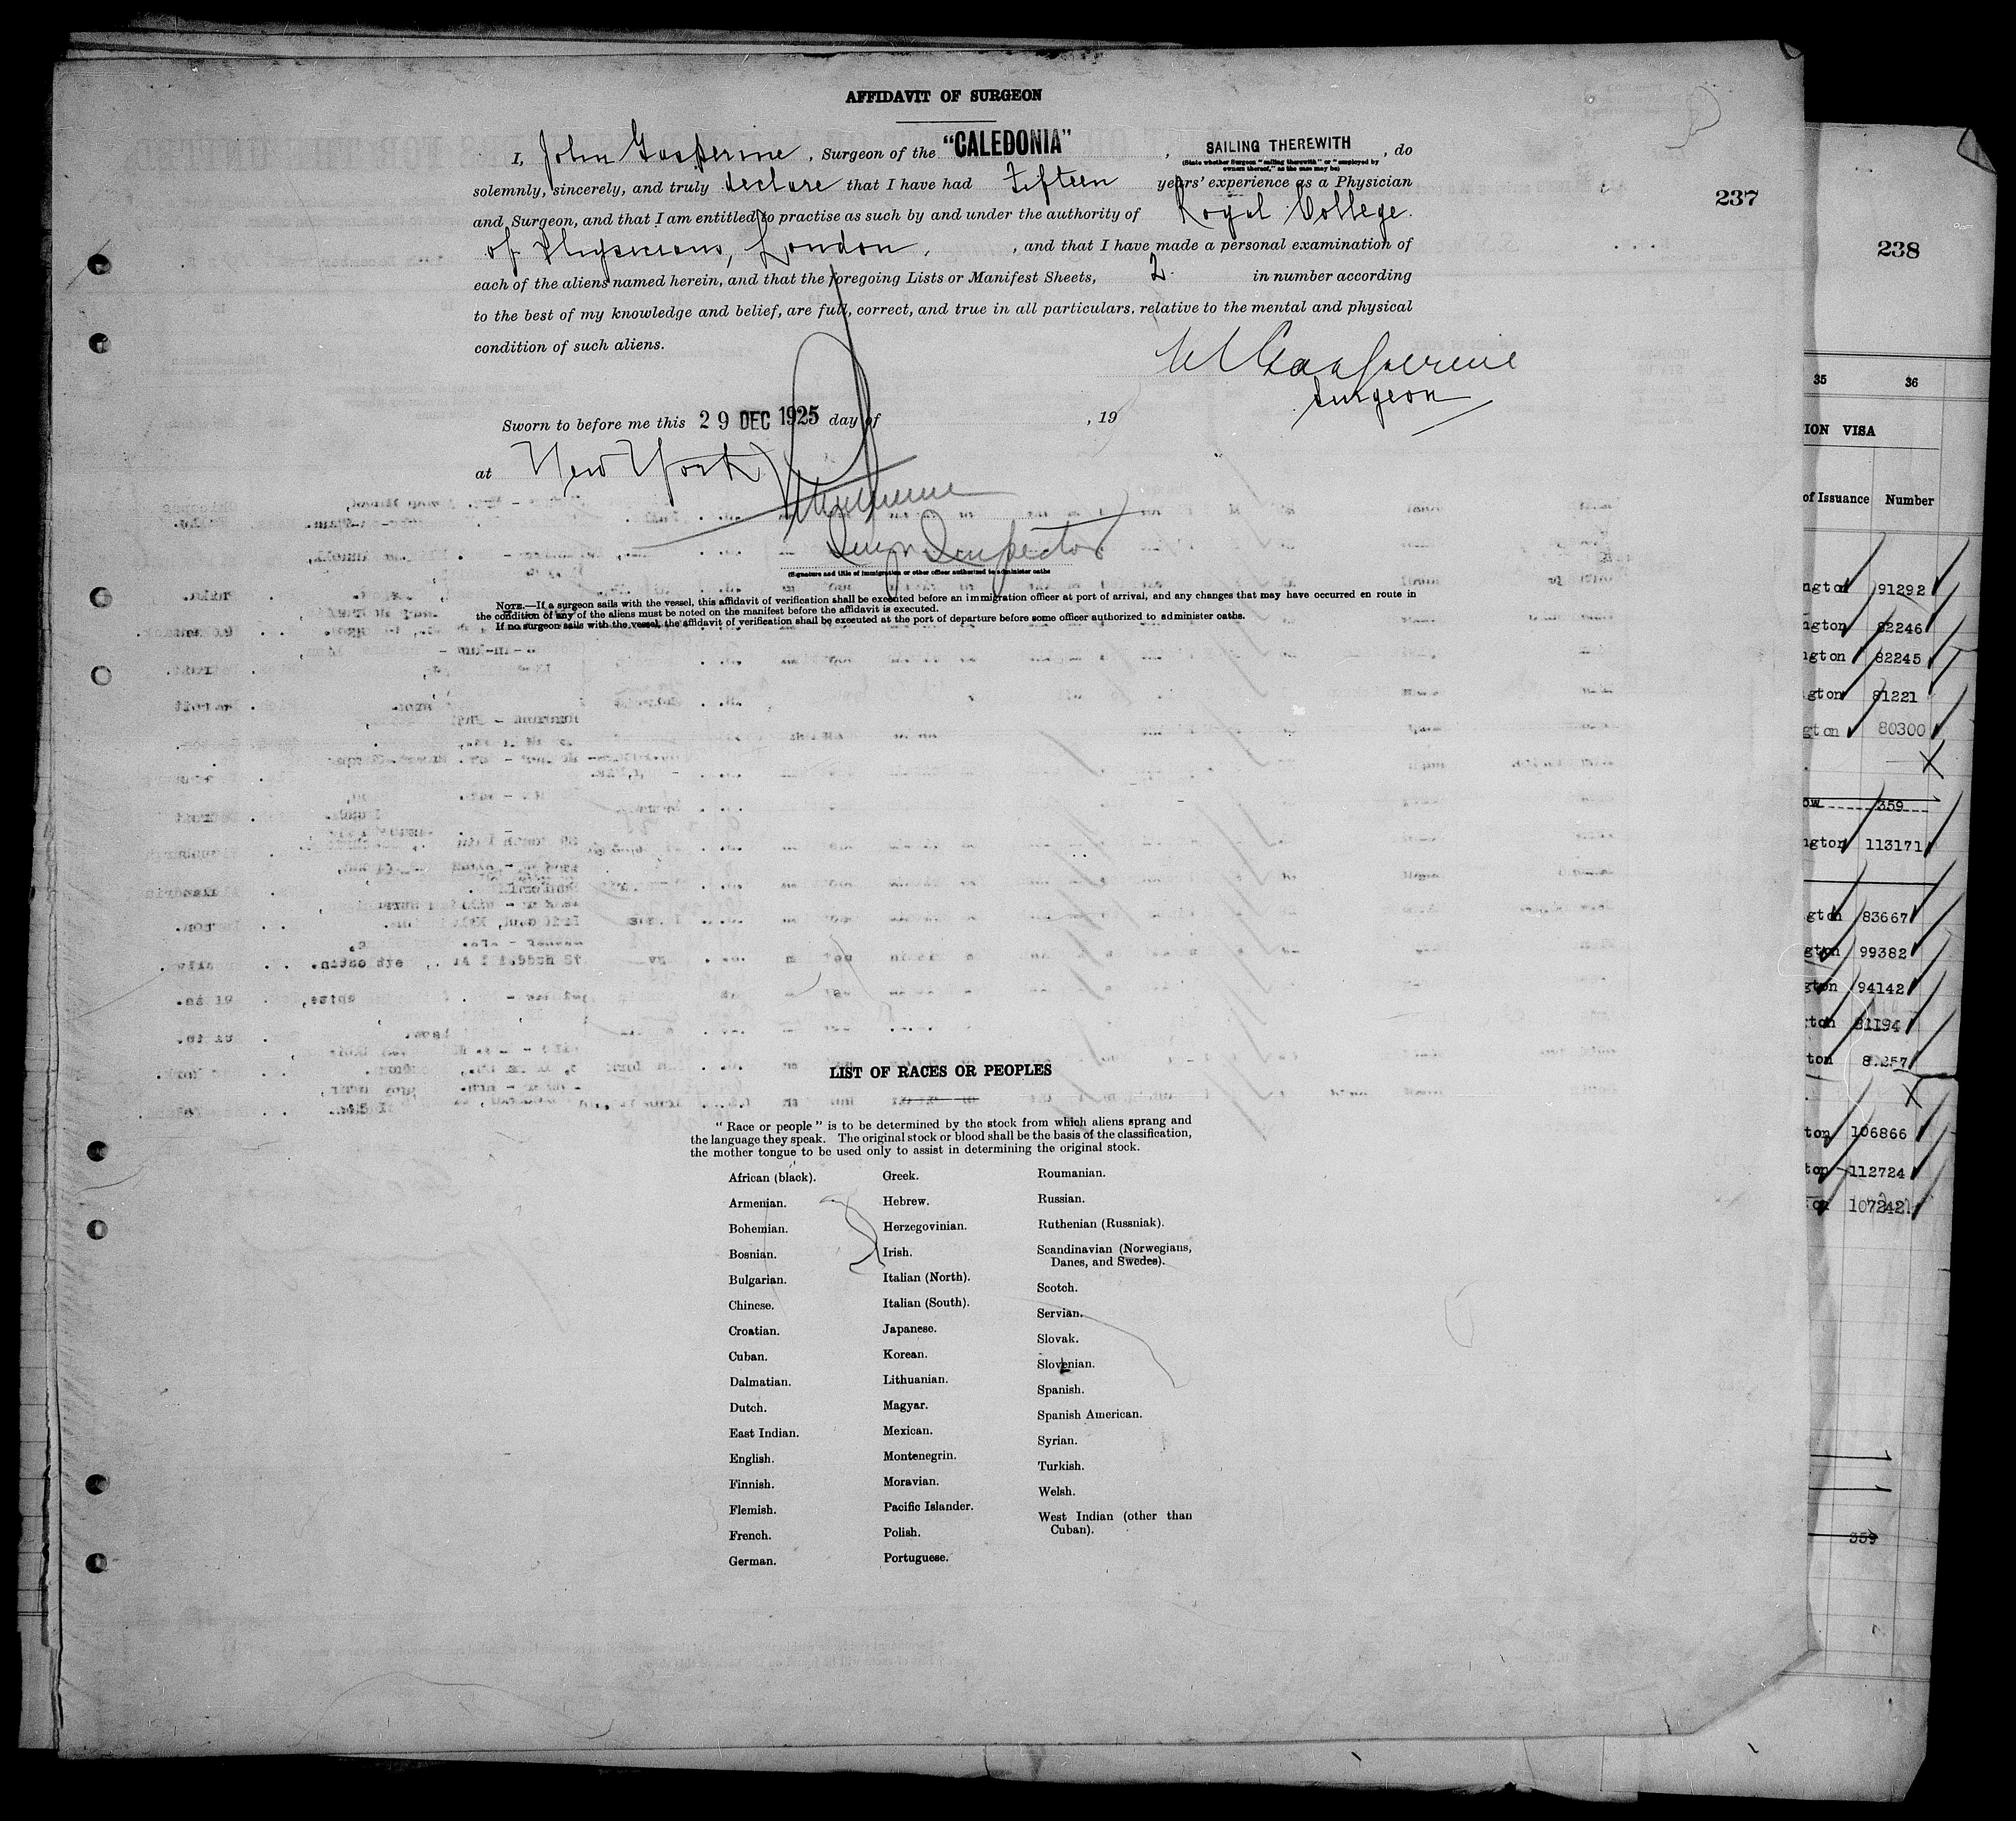 AFFIDAVIT OF SURGEON
I, John Gasperine, Surgeon of the "CALEDONIA", SAILING THEREWITH, do
(State whether Surgeon "sailing therewith" or "employed by
owners thereof," as the case may be)
solemnly, sincerely, and truly declare that I have had Fifteen years' experience as a Physician
and Surgeon, and that I am entitled to practise as such by and under the authority of Royal College
of Physicians, London, , and that I have made a personal examination of
each of the aliens named herein, and that the foregoing Lists or Manifest Sheets, 2 in number according
to the best of my knowledge and belief, are full, correct, and true in all particulars, relative to the mental and physical
condition of such aliens.
Surgeon
Sworn to before me this 29 DEC 1925 day of , 19
at New York
Inspector
(Signature and title of immigration or other officer authorized to administer oaths
NOTE.—If a surgeon sails with the vessel, this affidavit of verification shall be executed before an immigration officer at port of arrival, and any changes that may have occurred en route in
the condition of any of the aliens must be noted on the manifest before the affidavit is executed.
If no surgeon sails with the vessel, the affidavit of verification shall be executed at the port of departure before some officer authorized to administer oaths.
LIST OF RACES OR PEOPLES
"Race or people" is to be determined by the stock from which aliens sprang and
the language they speak. The original stock or blood shall be the basis of the classification,
the mother tongue to be used only to assist in determining the original stock.
African (black).
Armenian.
Bohemian.
Bosnian.
Bulgarian.
Chinese.
Croatian.
Cuban.
Dalmatian.
Dutch.
East Indian.
English.
Finnish.
Flemish.
French.
German.
Greek.
Hebrew.
Herzegovinian.
Irish.
Italian (North).
Italian (South).
Japanese.
Korean.
Lithuanian.
Magyar.
Mexican.
Montenegrin.
Moravian.
Pacific Islander.
Polish.
Portuguese.
Roumanian.
Russian.
Ruthenian (Russniak).
Scandinavian (Norwegians,
Danes, and Swedes).
Scotch.
Servian.
Slovak.
Slovenian.
Spanish.
Spanish American.
Syrian.
Turkish.
Welsh.
West Indian (other than
Cuban).
237
238
35 36
ION VISA
of Issuance Number
ngton 91292
ngton 82246
ngton 82245
gton 81221
gton 80300
ow 359
ngton 113171
gton 83667
gton 99382
gton 94142
ton 81194
ton 8.257
ton 106866
ton 112724
ton 107242
359